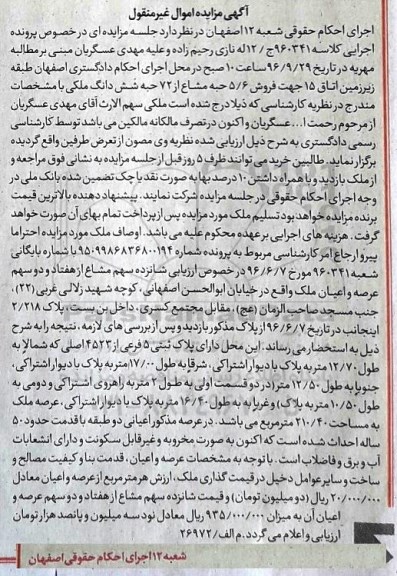 آگهی مزایده اموال غیرمنقول
اجرای احکام حقوقی شعبه ۱۲ اصفهان در نظر دارد جلسه مزایده ای در خصوص پرونده
اجرایی کلاسه ۹۶۰۳۴۱ ج / ۱۲ له نازی رحیم زاده و علیه مهدی عسگریان مبنی بر مطالبه
مهریه در تاریخ ۹۶/۹/۲۹ ساعت ۱۰ صبح در محل اجرای احکام دادگستری اصفهان طبقه
زیرزمین اتاق ۱۵ جهت فروش ۵/۶ حبه مشاع از ۷۲ حبه شش دانگ ملکی با مشخصات
مندرج در نظریه کارشناسی که ذیلا درج شده است ملکی سهم الارث آقای مهدی عسگریان
از مرحوم رحمت ا... عسگریان و اکنون در تصرف مالکانه مالکین می باشد توسط کارشناسی
رسمی دادگستری به شرح ذیل ارزیابی شده نظریه وی مصون از تعرض طرفین واقع گردیده
برگزار نماید. طالبین خرید می توانند ظرف ۵ روز قبل از جلسه مزایده به نشانی فوق مراجعه و
از ملک بازدید و با همراه داشتن ۱۰ درصد بها به صورت نقد یا چک تضمین شده بانک ملی در
وجه اجرای احکام حقوقی در جلسه مزایده شرکت نمایند. پیشنهاد دهنده بالاترین قیمت
برنده مزایده خواهد بود تسلیم ملک مورد مزایده پس از پرداخت تمام بهای آن صورت خواهد
گرفت. هزینه های اجرایی بر عهده محکوم علیه می باشد. اوصاف ملک مورد مزایده احتراما
پیرو ارجاع امر کارشناسی مربوط به پرونده شماره ۹۵۰۹۹۸۶۸۳۶۸۰۰۱۹۴ با شماره بایگانی
شعبه ۹۶۰۳۴۱ مورخ ۹۶/۶/۷ در خصوص ارزیابی شانزده سهم مشاع از هفتاد و دو سهم
عرصه و اعیان ملک واقع در خیابان ابوالحسن اصفهانی، کوچه شهید زلالی غربی (۲۲)،
جنب مسجد صاحب الزمان (عج)، مقابل مجتمع کسری، داخل بن بست، پلاک ۲/۲۱۸
اینجانب در تاریخ ۹۶/۶/۷ از پلاک مذکور بازدید و پس از بررسی های لازمه، نتیجه را به شرح
ذیل به استحضار می رساند. این محل دارای پلاک ثبتی ۵ فرعی از ۴۵۲۳ اصلی که شمالا به
طول ۱۲/۷۰ متر به پلاک با دیوار اشتراکی، شرقا به طول ۱۷/۰۰ متر به پلاک با دیوار اشتراکی،
جنوبا به طول ۱۲/۵۰ متر (در دو قسمت اولی به طول ۲ متر به راهروی اشتراکی و دومی به
طول ۱۰/۵۰ متر به پلاک) و غربا به به طول ۱۶/۴۰ متر به پلاک با دیوار اشتراکی، عرصه ملک
به مساحت ۲۱۰/۴۰ مترمربع می باشد. در عرصه مذکور اعیانی دو طبقه با قدمت حدود ۵۰
ساله احداث شده است که اکنون به صورت مخروبه و غیرقابل سکونت و دارای انشعابات
آب و برق و فاضلاب است. با توجه به مشخصات عرصه و اعیان، قدمت بنا و کیفیت مصالح و
ساخت و سایر عوامل دخیل در قیمت گذاری ملک، ارزش هر مترمربع از عرصه و اعیان معادل
۲۰/۰۰۰/۰۰۰ ریال (دو میلیون تومان) و قیمت شانزده سهم مشاع از هفتاد و دو سهم عرصه و
اعیان آن به میزان ۹۳۵/۰۰۰/۰۰۰ ریال معادل نود سه میلیون و پانصد هزار تومان
ارزیابی و اعلام می گردد. م الف / ۲۶۹۷۲
شعبه ۱۲ اجرای احکام حقوقی اصفهان